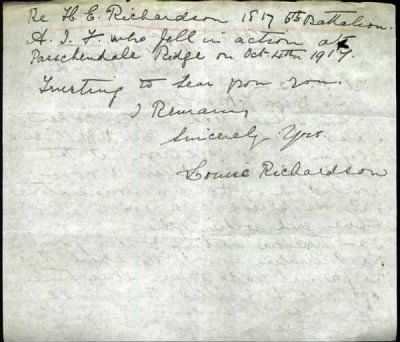 Re H. E. Richardson 1817 6th Battalion.
A. I. F. who fell in action at
Passchendale Ridge on Oct 4th 1917.
Trusting to hear from you.
I Remain,
Sincerely Yrs.
Louise Richardson